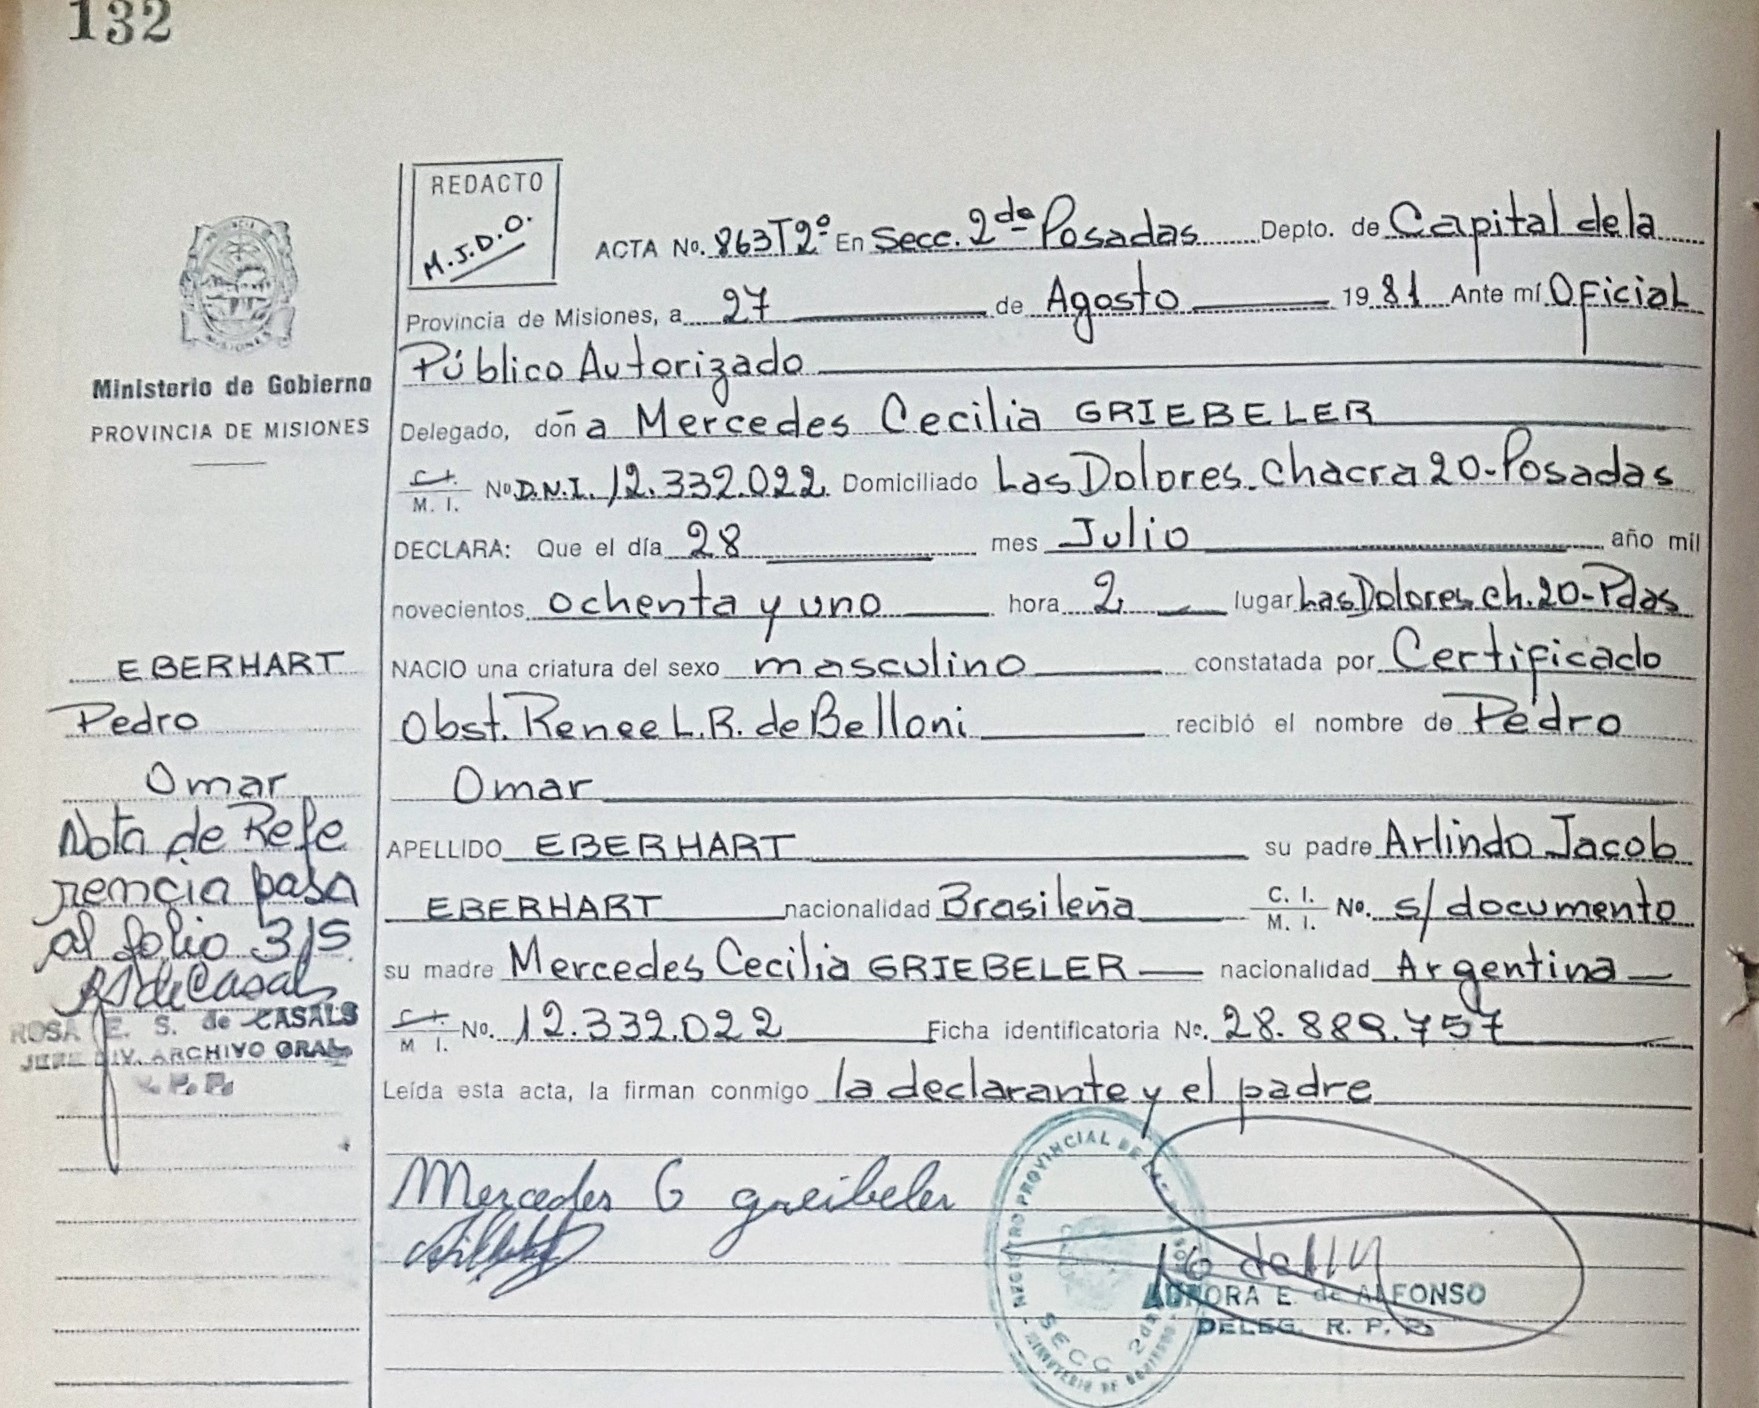 132
REDACTO
M.J.D.O.
ACTA No. 863T2º En Secc. 2da Posadas Depto. de Capital de la
Provincia de Misiones, a 27 de Agosto 1981 Ante mí Oficial
Público Autorizado
Delegado, doña Mercedes Cecilia GRIEBELER
C.I.
M. I. No D.N.I. 12.332.022 Domiciliado Las Dolores. Chacra 20-Posadas
DECLARA: Que el día 28 mes Julio año mil
novecientos ochenta y uno hora 2 lugar Las Dolores ch. 20-Pdas
NACIO una criatura del sexo masculino constatada por Certificado
Obst. Renee L.R. de Belloni recibió el nombre de Pedro
Omar
APELLIDO EBERHART su padre Arlindo Jacob
EBERHART nacionalidad Brasileña C. I.
M. I. No. s/documento
su madre Mercedes Cecilia GRIEBELER nacionalidad Argentina
C.I.
M I. No. 12.332.022 Ficha identificatoria No. 28.889.757
Leída esta acta, la firman conmigo la declarante y el padre
Mercedes G greibeler
AURORA E. de ALFONSO
DELEG. R. P. P.
REGISTRO PROVINCIAL DE LAS
SECC 2da
MINISTERIO DE GOBIERNO
MISIONES
Ministerio de Gobierno
PROVINCIA DE MISIONES
EBERHART
Pedro
Omar
Nota de Refe
rencia pasa
al folio 315
RSdeCasals
ROSA E. S. de CASALS
JEFE DIV. ARCHIVO GRAL